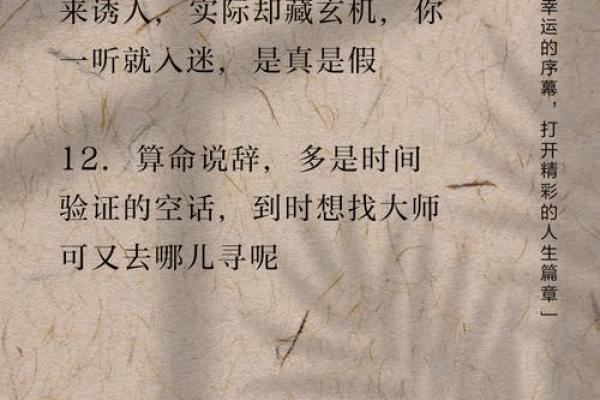 来诱人，实际却藏玄机，你
一听就入迷，是真是假
12. 算命说辞，多是时间
验证的空话，到时想找大师
可又去哪儿寻呢
幸运的序幕，打开精彩的人生篇章」